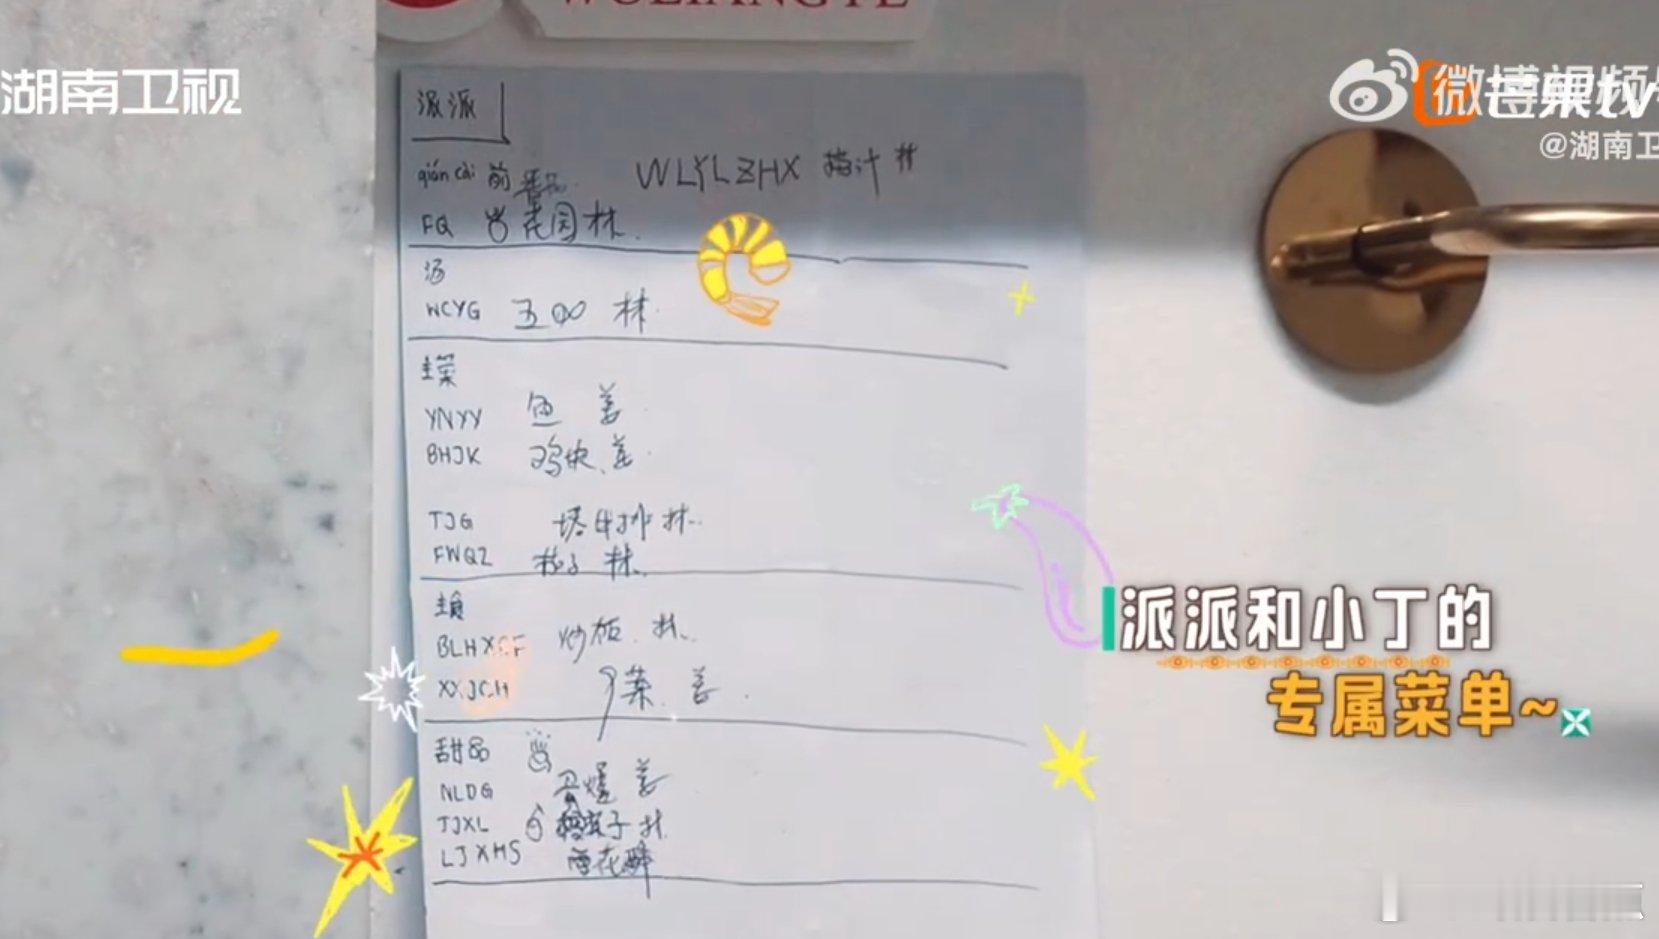 WULIANGYE
湖南卫视
微博视频
芒果TV
@湖南卫
派派
qián cài 前 WLYLZHX 梅汁 林
FQ 花园 林
汤
WCYG 五 林
主菜
YNYY 鱼 姜
BHJK 鸡块 姜
TJG 塔 牛排 林
FWQZ 茄子 林
主食
BLHXCF 炒饭 林
XXJCH 菜 姜
甜品
NLDG 蛋糕 姜
TJXL 子 林
LJXMS 雪花酥
派派和小丁的
专属菜单~